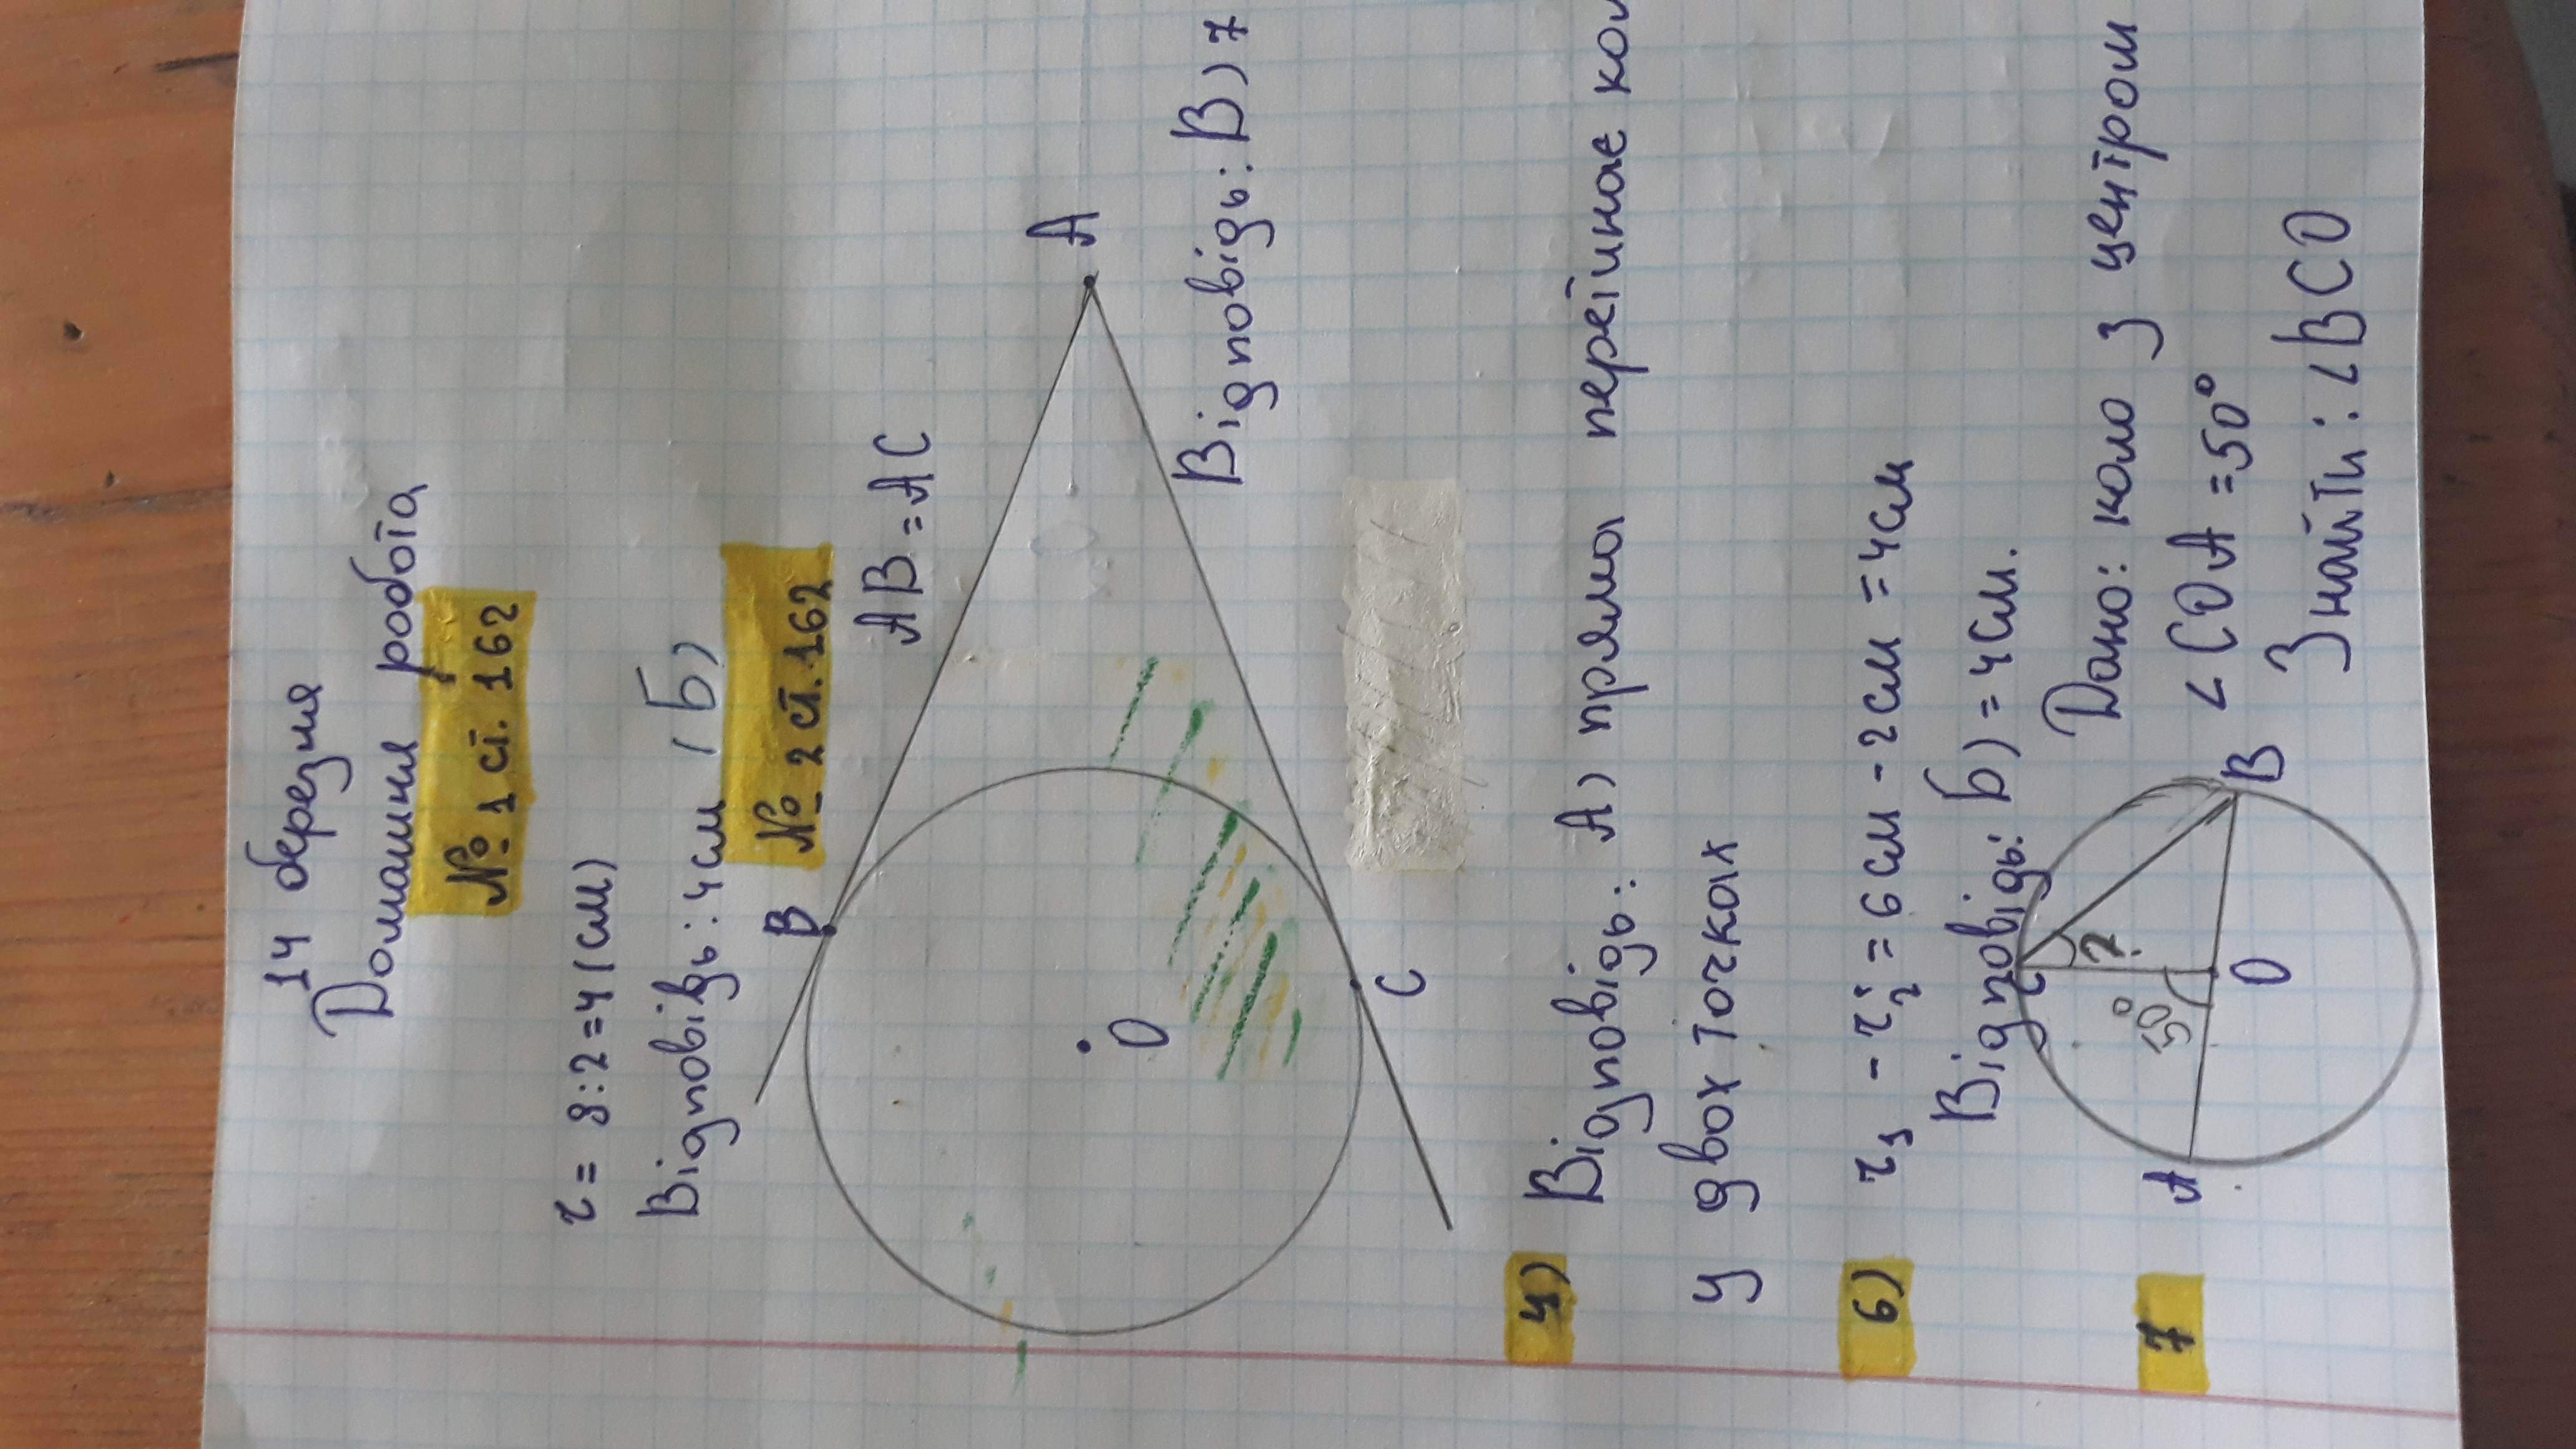 14 березня
Домашня робота
№ 1 ст. 162
r = 8:2=4(см)
Відповідь: 4см (Б)
№ 2 ст. 162
B
AB = AC
A
O
C
Відповідь: В) 7
4) Відповідь: А) пряма перетинає
у двох точках
6) r₁ - r₂ = 6 см - 2 см = 4см
Відповідь: Б) = 4см.
7
Дано: коло з центром
∠COA = 50°
Знайти: ∠BCO
C
?
50°
A
O
B